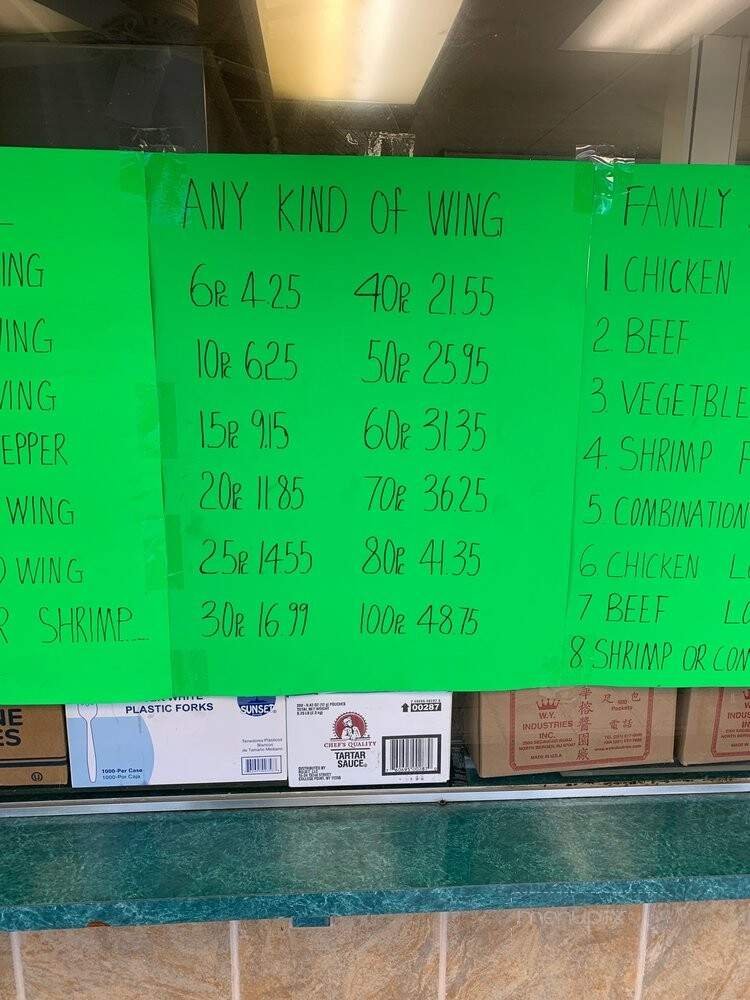 ING
ING
ING
EPPER
WING
WING
R SHRIMP
ANY KIND OF WING
6PC 4.25 40PC 21.55
10PC 6.25 50PC 25.95
15PC 9.15 60PC 31.35
20PC 11.85 70PC 36.25
25PC 14.55 80PC 41.35
30PC 16.99 100PC 48.75
FAMILY
1 CHICKEN
2 BEEF
3. VEGETBLE
4. SHRIMP F
5. COMBINATION
6 CHICKEN LO
7 BEEF LO
8. SHRIMP OR COM
PLASTIC FORKS
SUNSET
1000-Per Case
1000-Por Caja
CHEF'S QUALITY
TARTAR
SAUCE
00287
W.Y.
INDUSTRIES
INC.
MADE IN U.S.A.
Packets
電話
menupix